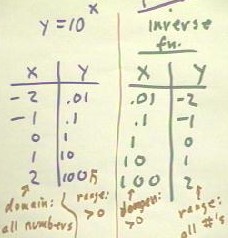 y = 10^x
x y
-2 .01
-1 .1
0 1
1 10
2 100
domain: all numbers
range: >0
inverse fn.
x y
.01 -2
.1 -1
1 0
10 1
100 2
domain: >0
range: all #'s